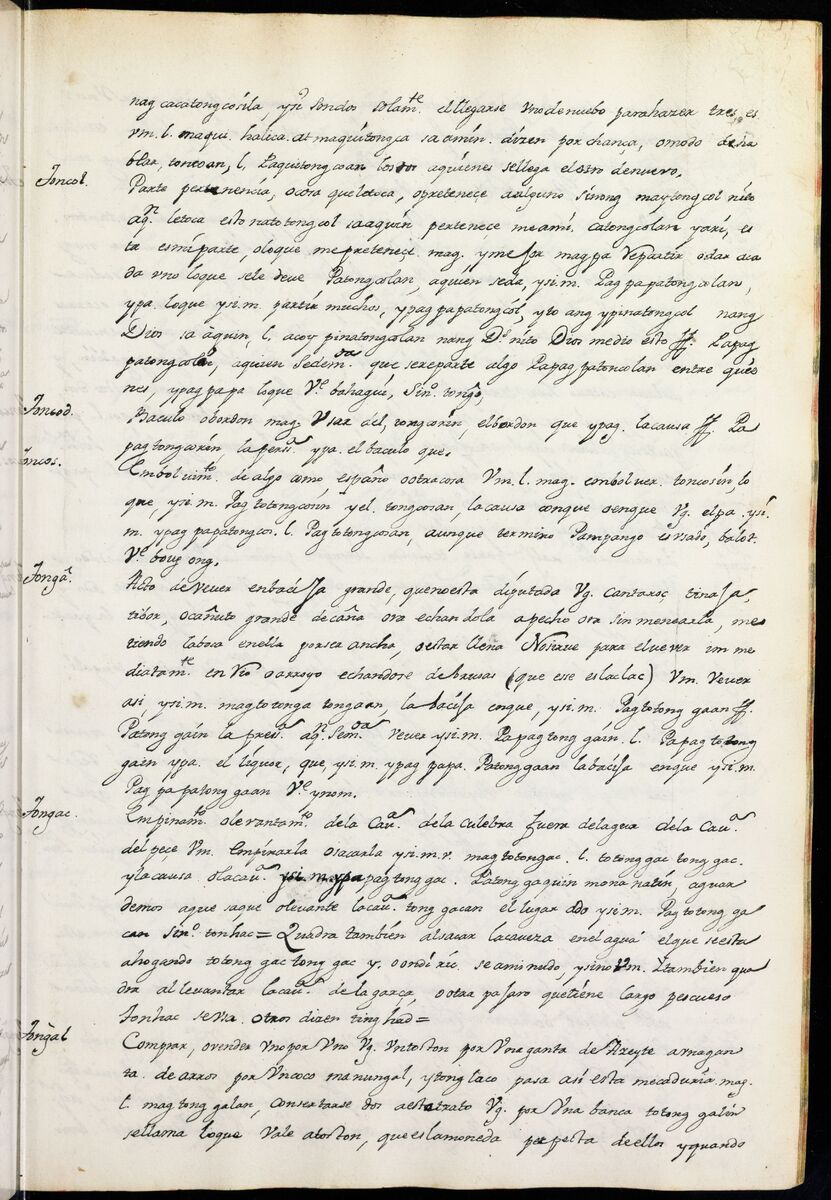 nag cacatongcosila ysi sondos solam.te el llegarse vno denuebo parahazer tres, es
vm. l. maqui. halica. at maquitongca sa amin. diren por chanca, o modo de ha
blar, toncoan, l. taquitongcoan los dos aquienes sellega el otro denuevo.
Toncol. Parte pertenencia, o cosa que letoca, o pretenece a alguno sinong may tongcol nito
aq.n letoca esto natotongcol sa aquin pertenece me a mi. catongcolan yari, es
ta es mi parte, o loque me preteneçe mag. ymejor magpa Repartir o dar aca
da vno loque sele deve Patongcolan, aquien seda, ysi.m. Pag papatongcolan,
ypa. loque ysi.m. partir muchos, ypag papatongcol, yto ang ypinatongcol nang
Dios sa aquin, l. acoy pinatongcolan nang D.s nito Dios medio esto ff. Papag
patongcolan, aquien Sedem.da que sereparte algo Papag patoncolan entre quie
nes, ypag papa loque V.e bahagui, Sin.o tongo,
Toncod. Baculo o bordon mag. Vsar del, tongcorin, el bordon que ypag. lacausa ff. Pa
pag tongcorin la pers.a ypa. el baculo que.
Toncos. Embolvim.to de algo como, español o otra cosa Vm. l. mag. embolver. toncosin, lo
que, ysi.m. Pag totongcosin y el. tongcosan, lacausa conque oenque Vg. el pa. ysi.
m. ypag papatongcos. l. Pag totongcosan, aunque termino Pampango es vsado, balot.
V.e bong ong.
Tonga. Acto de Vever en tacilla grande, que no esta diputada Vg. cantaro, tinaja,
tibor, o cañuto grande de caña ora echandola apecho ora sin menearla, me
tiendo laboca en ella por ser ancha, o estar llena Nosirve para el vever im me
diatam.te en Rio o arroyo echandose de brusas (que ese es laclac) Vm. Vever
asi ysi.m. magtotonga tongaan, la bacisa enque, ysi.m. Pagtotong gaan ff.
Patong gain la pers.a aq.n Sem.da vever ysi.m. Papag tong gain. l. Papag totong
gain ypa. el liquor, que, ysi.m. ypag papa. Patong gaan labacisa enque ysi.m.
Pag pa patong gaan V.e ynom.
Tongac. Empinam.to o levantam.to dela Cav.a dela culebra fuera delagua dela Cav.a
del peçe Vm. Empinarla o sacarla ysi.m.r. magtotongac. l. totong gac tong gac.
y lacausa o lacav.a pag tong gac. Patong gaquin mona natin, aguar
demos aque saque o levante lacav.a tong gacan el lugar ado ysi.m. Pag totong ga
can Sin.o tonhac = Quadra tambien al sacar lacaveza en el agua el que se esta
ahogando totong gac tong gac y. se amenudo, ysino Vm. Y tambien qua
dra al levantar lacav.a de la garça, o otra pajaro que tiene largo pescueso
Tonhac se vsa. otros dizen ting had =
Tongal Comprar, o vender vno por Vno Vg. Vn toston por Vna ganta de Azeyte avnagan
ta. de arros por Vn coco manungal, y tong laco pasa asi esta mecaduria mag.
l. mag tong galan, Consertarse dos aestetrato Vg. por Vna banca totong galin
se llama loque Vale atoston, que es lamoneda perfecta deellos y quando